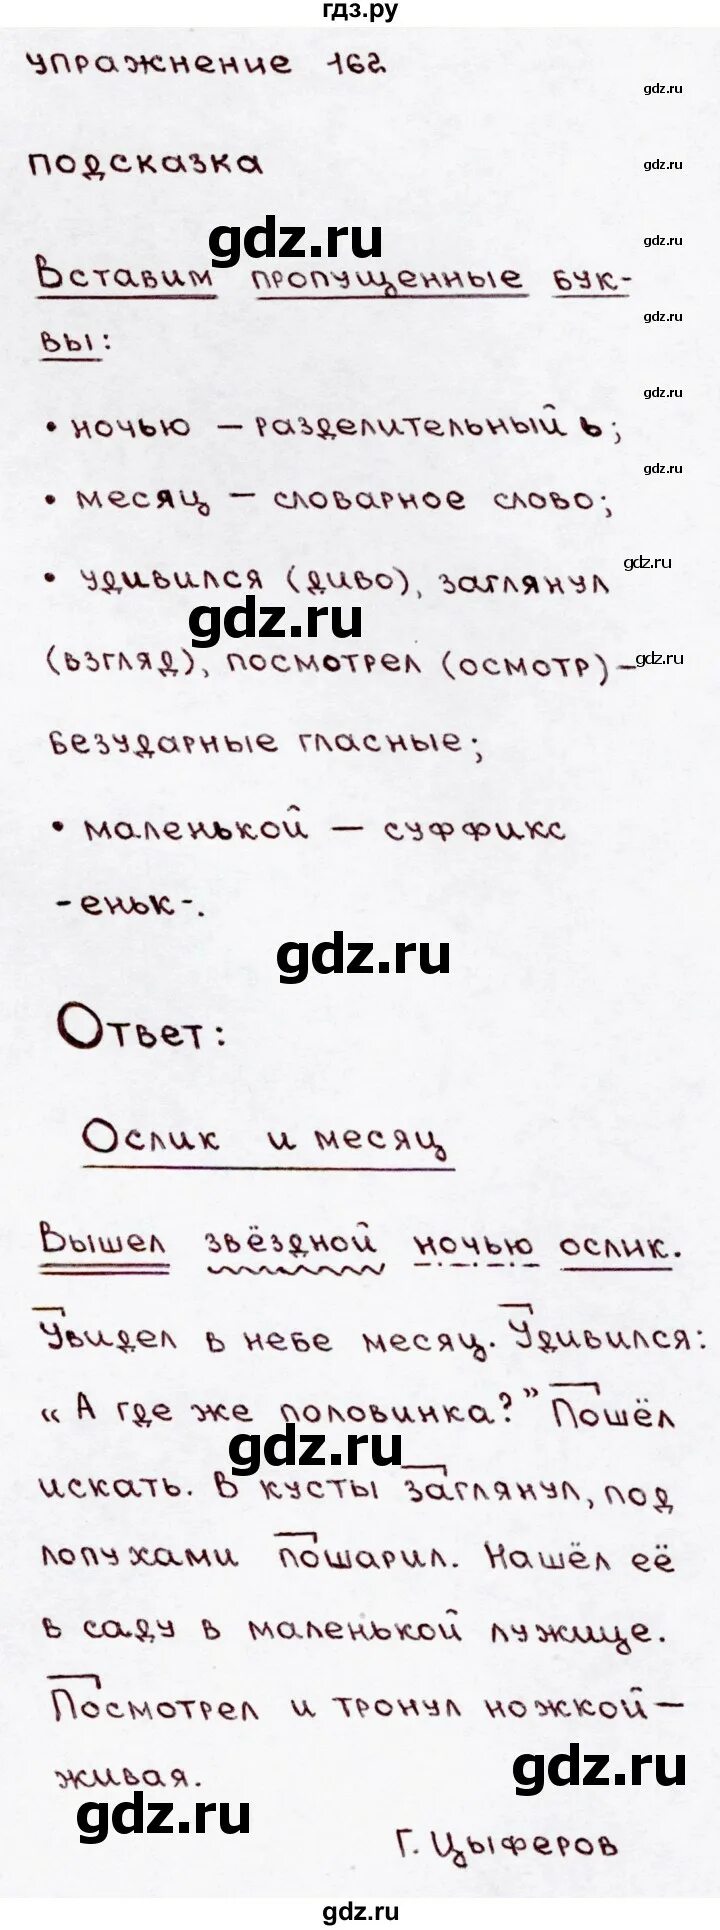 гдз.ру
упражнение 162
gdz.ru
подсказка
gdz.ru
gdz.ru
gdz.ru
Вставим пропущенные бук-
gdz.ru
вы:
gdz.ru
• ночью – разделительный ь;
gdz.ru
• месяц – словарное слово;
gdz.ru
• удивился (диво), заглянул
gdz.ru
(взгляд), посмотрел (осмотр) –
gdz.ru
безударные гласные;
• маленькой – суффикс
-еньк-.
gdz.ru
Ответ:
Ослик и месяц
Вышел звёздной ночью ослик.
Увидел в небе месяц. Удивился:
„А где же половинка?” Пошёл
gdz.ru
искать. В кусты заглянул, под
лопухами пошарил. Нашёл её
в саду в маленькой лужице.
Посмотрел и тронул ножкой –
gdz.ru
живая.
gdz.ru
Г. Цыферов
gdz.ru